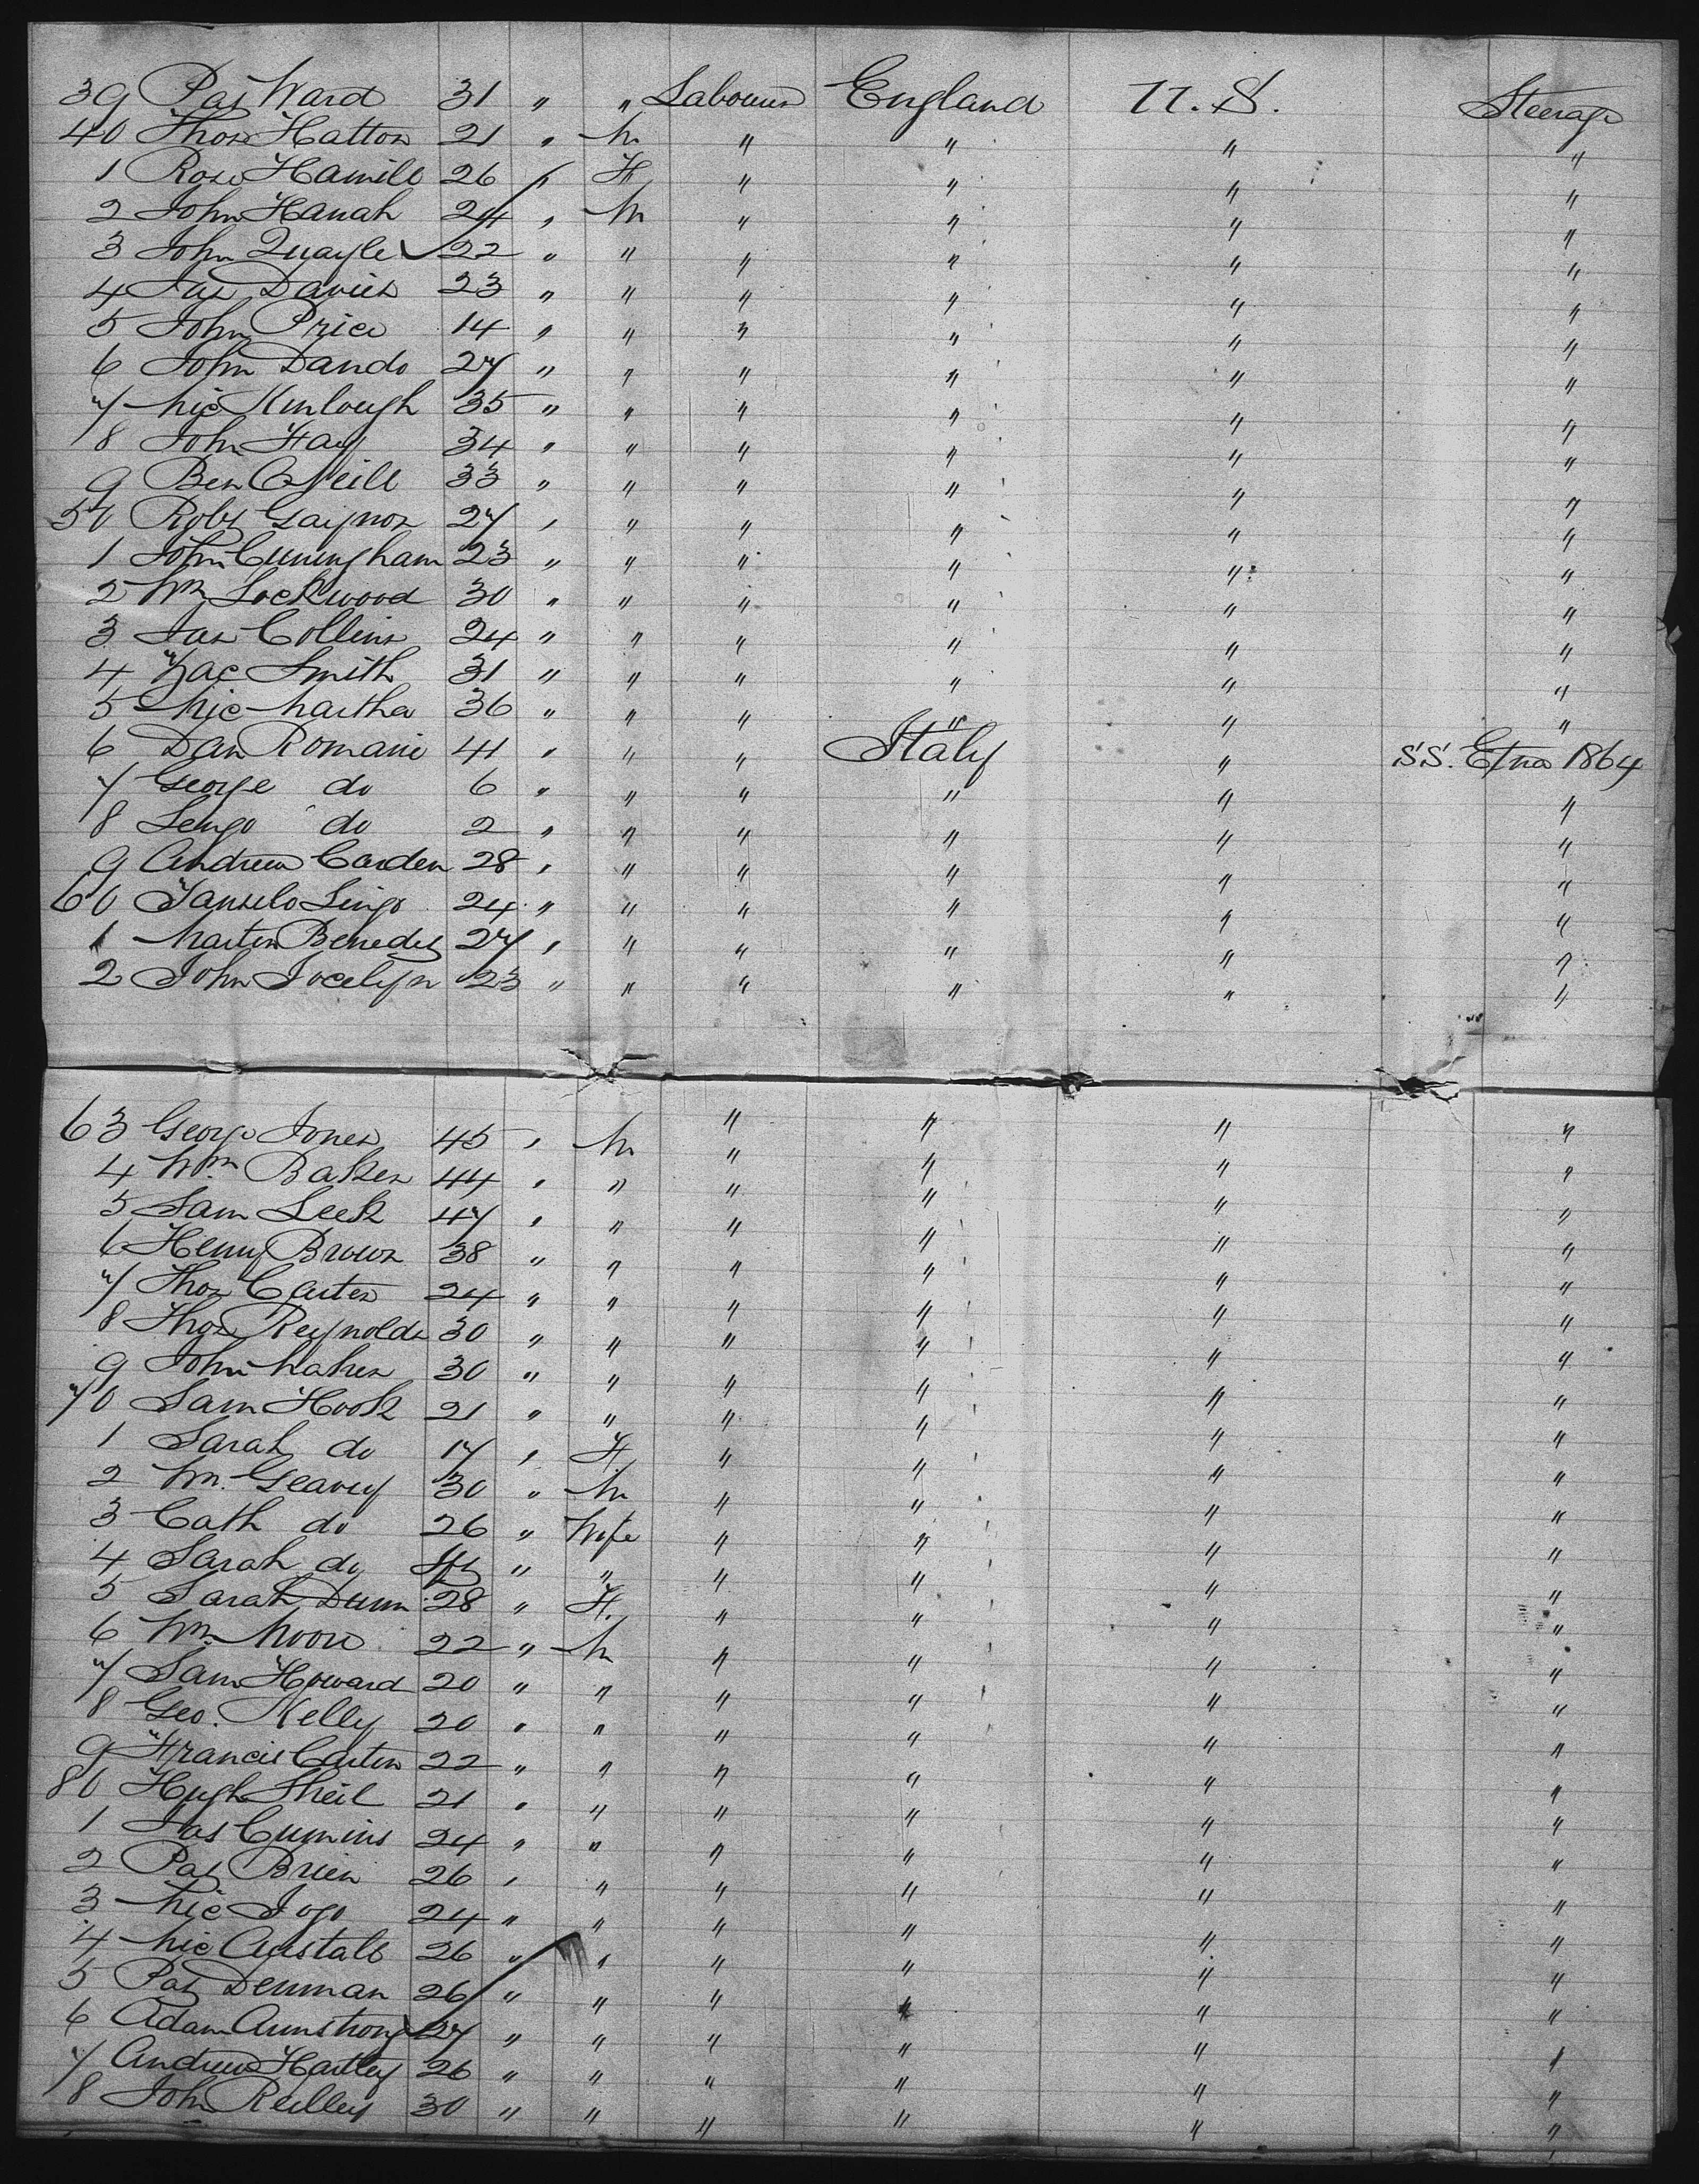 39 Pat Ward 31 " " Labourer England U.S. Steerage
40 Thos Hatton 21 " M " " " "
1 Rose Hamill 26 " F " " " "
2 John Hanah 24 " M " " " "
3 John Quayle 22 " " " " " "
4 Jas Davies 23 " " " " " "
5 John Price 14 " " " " " "
6 John Dando 27 " " " " " "
7 Mic Kinlough 35 " " " " " "
8 John Hay 34 " " " " " "
9 Ben O'Neill 33 " " " " " "
50 Robt Gaynor 27 " " " " " "
1 John Cuningham 23 " " " " " "
2 Wm Lockwood 30 " " " " " "
3 Jas Collins 24 " " " " " "
4 Zac Smith 31 " " " " " "
5 Mic Martha 36 " " " " " "
6 Dan Romani 41 " " " Italy " S.S. Etna 1864
7 George do 6 " " " " " "
8 Lengo do 2 " " " " " "
9 Andrew Carden 28 " " " " " "
60 Lingo 24 " " " " " "
1 Martin Benedet 27 " " " " " "
2 John Jocelyn 23 " " " " " "
63 George Jones 45 " M " " " "
4 Wm Baker 44 " " " " " "
5 Sam Leek 47 " " " " " "
6 Henry Brown 38 " " " " " "
7 Thos Carter 24 " " " " " "
8 Thos Reynolds 30 " " " " " "
9 John Maher 30 " " " " " "
70 Sam Hook 21 " " " " " "
1 Sarah do 17 " F " " " "
2 Wm. Geavey 30 " M " " " "
3 Cath do 26 " Wife " " " "
4 Sarah do " " " " " "
5 Sarah Dunn 28 " F. " " " "
6 Wm Moore 22 " M " " " "
7 Sam Howard 20 " " " " " "
8 Geo. Kelly 20 " " " " " "
9 Francis Carter 22 " " " " " "
80 Hugh Sheil 21 " " " " " "
1 Jas Cumins 24 " " " " " "
2 Pat Brien 26 " " " " " "
3 Mic Jogo 24 " " " " " "
4 Mic Austall 26 " " " " " "
5 Pat Denman 26 " " " " " "
6 Adam Armstrong 27 " " " " " "
7 Andrew Hartley 26 " " " " " "
8 John Reilley 30 " " " " " "